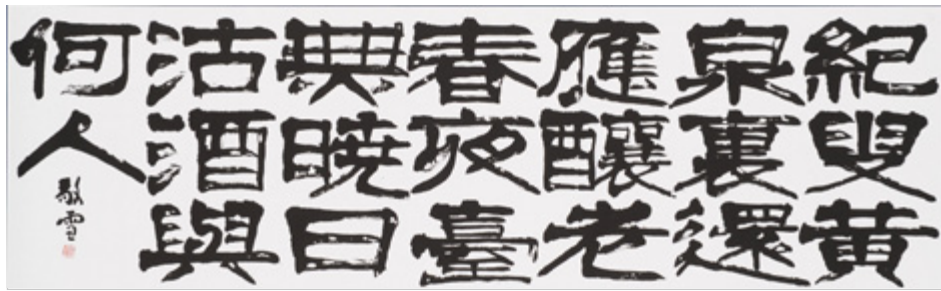 紀叟黄
泉裏還
應釀老
春夜臺
無暁日
沽酒與
何人
雪